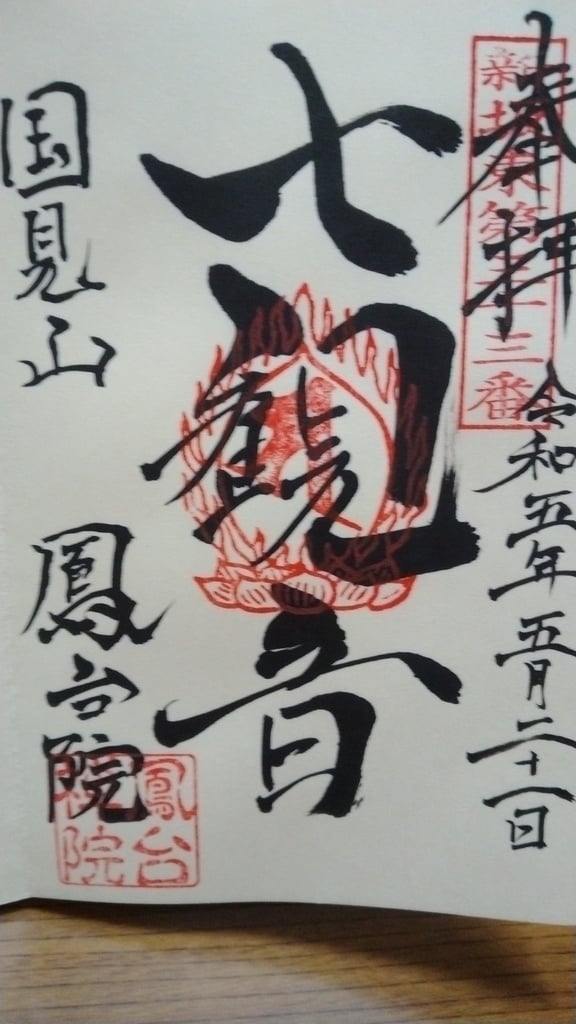 奉拝
新坂東第三十三番
令和五年五月二十一日
七観音
国見山 鳳台院
鳳台院